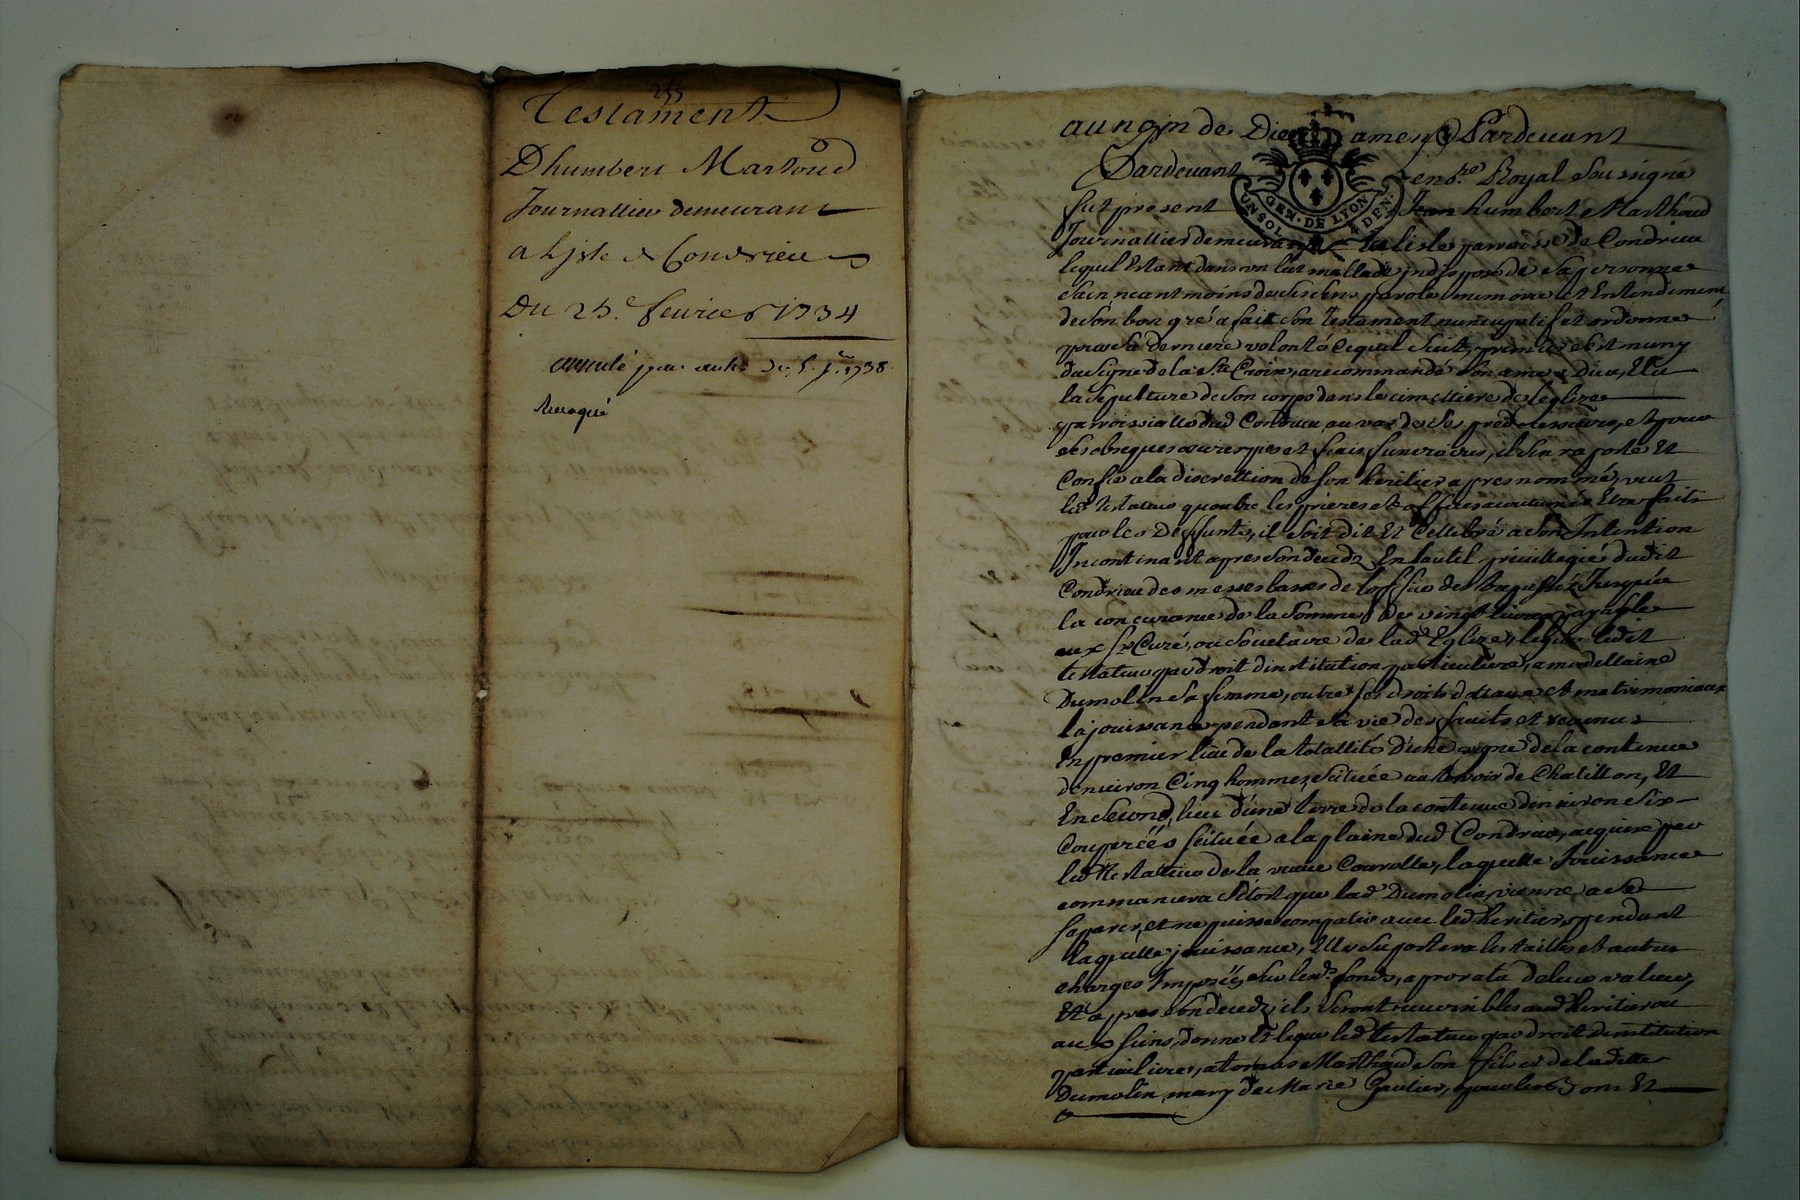 255
Testament
Dhumbert Marthoud
Journallier demeurant
a Lisle de Condrieu
Du 25e feurier 1734
annulé par autre du
1738
Reuoqué
au nom de Dieu amen Pardeuant
Pardeuant Royal Soussigné
fut present Jean humbert Marthoud
Journallier demeurant Lisle parroisse de Condrieu
lequel Estant dans un lit mallade indisposé de sa personne
sain neantmoins de ses sens parole memoire et Entendement
de son bon gré a fait son testament nuncupatif et ordonné
pour sa derniere volonté ce quil suit, premier s'est muny
du signe de la Ste Croix, a recommandé son ame a Dieu, Elu
la sepulture de son corps dans le cimettiere de leglize
parroissialle dud Condrieu au vas de ses predecesseurs, et pour
ses obseques et frais funeraires, il sen raporte Et
Confie a la discrettion de son heritier apres nommé, veut
led testateur quoutre les prieres et offices accoutumés Etre faits
pour les Deffunts, il soit dit Et Cellebré a son Intention
Incontinant apres son deced En lautel priuillegié dudit
Condrieu des messes basses de loffice des Jusqu'a
la concurance de la somme de vingt liures payable
aux srs Curé, ou Societaire de lad Eglize, legue ledit
testateur par droit dinstitution particuliere, a
Dumolin sa femme, outre ses droits dottaux et matrimoniaux
la jouissance pendant sa vie des fruits et reuenus
En premier lieu de la totallité d'une vigne de la contenue
denuiron Cinq hommes, scituée au terroir de Chatillon, Et
En second lieu d'une terre de la contenue denuiron Six
Couperéés scituée a la plaine dud Condrieu, acquise par
led testateur de la veuue laquelle Jouissance
commancera sitost que lad Dumolin vienne a se
separer, et ne puisse compatir auec led heritier, pendant
laquelle jouissance, Elle suportera les tailles et autres
charges Imposéés sur lesds fonds, a prorata de leur valeur,
Et apres son deced, ils seront reuersibles aud heritier ou
aux siens, donne Et legue led testateur par droit dinstitution
particuliere, a Marthoud son fils et de ladite
Dumolin mary de Marie Gautier, pour